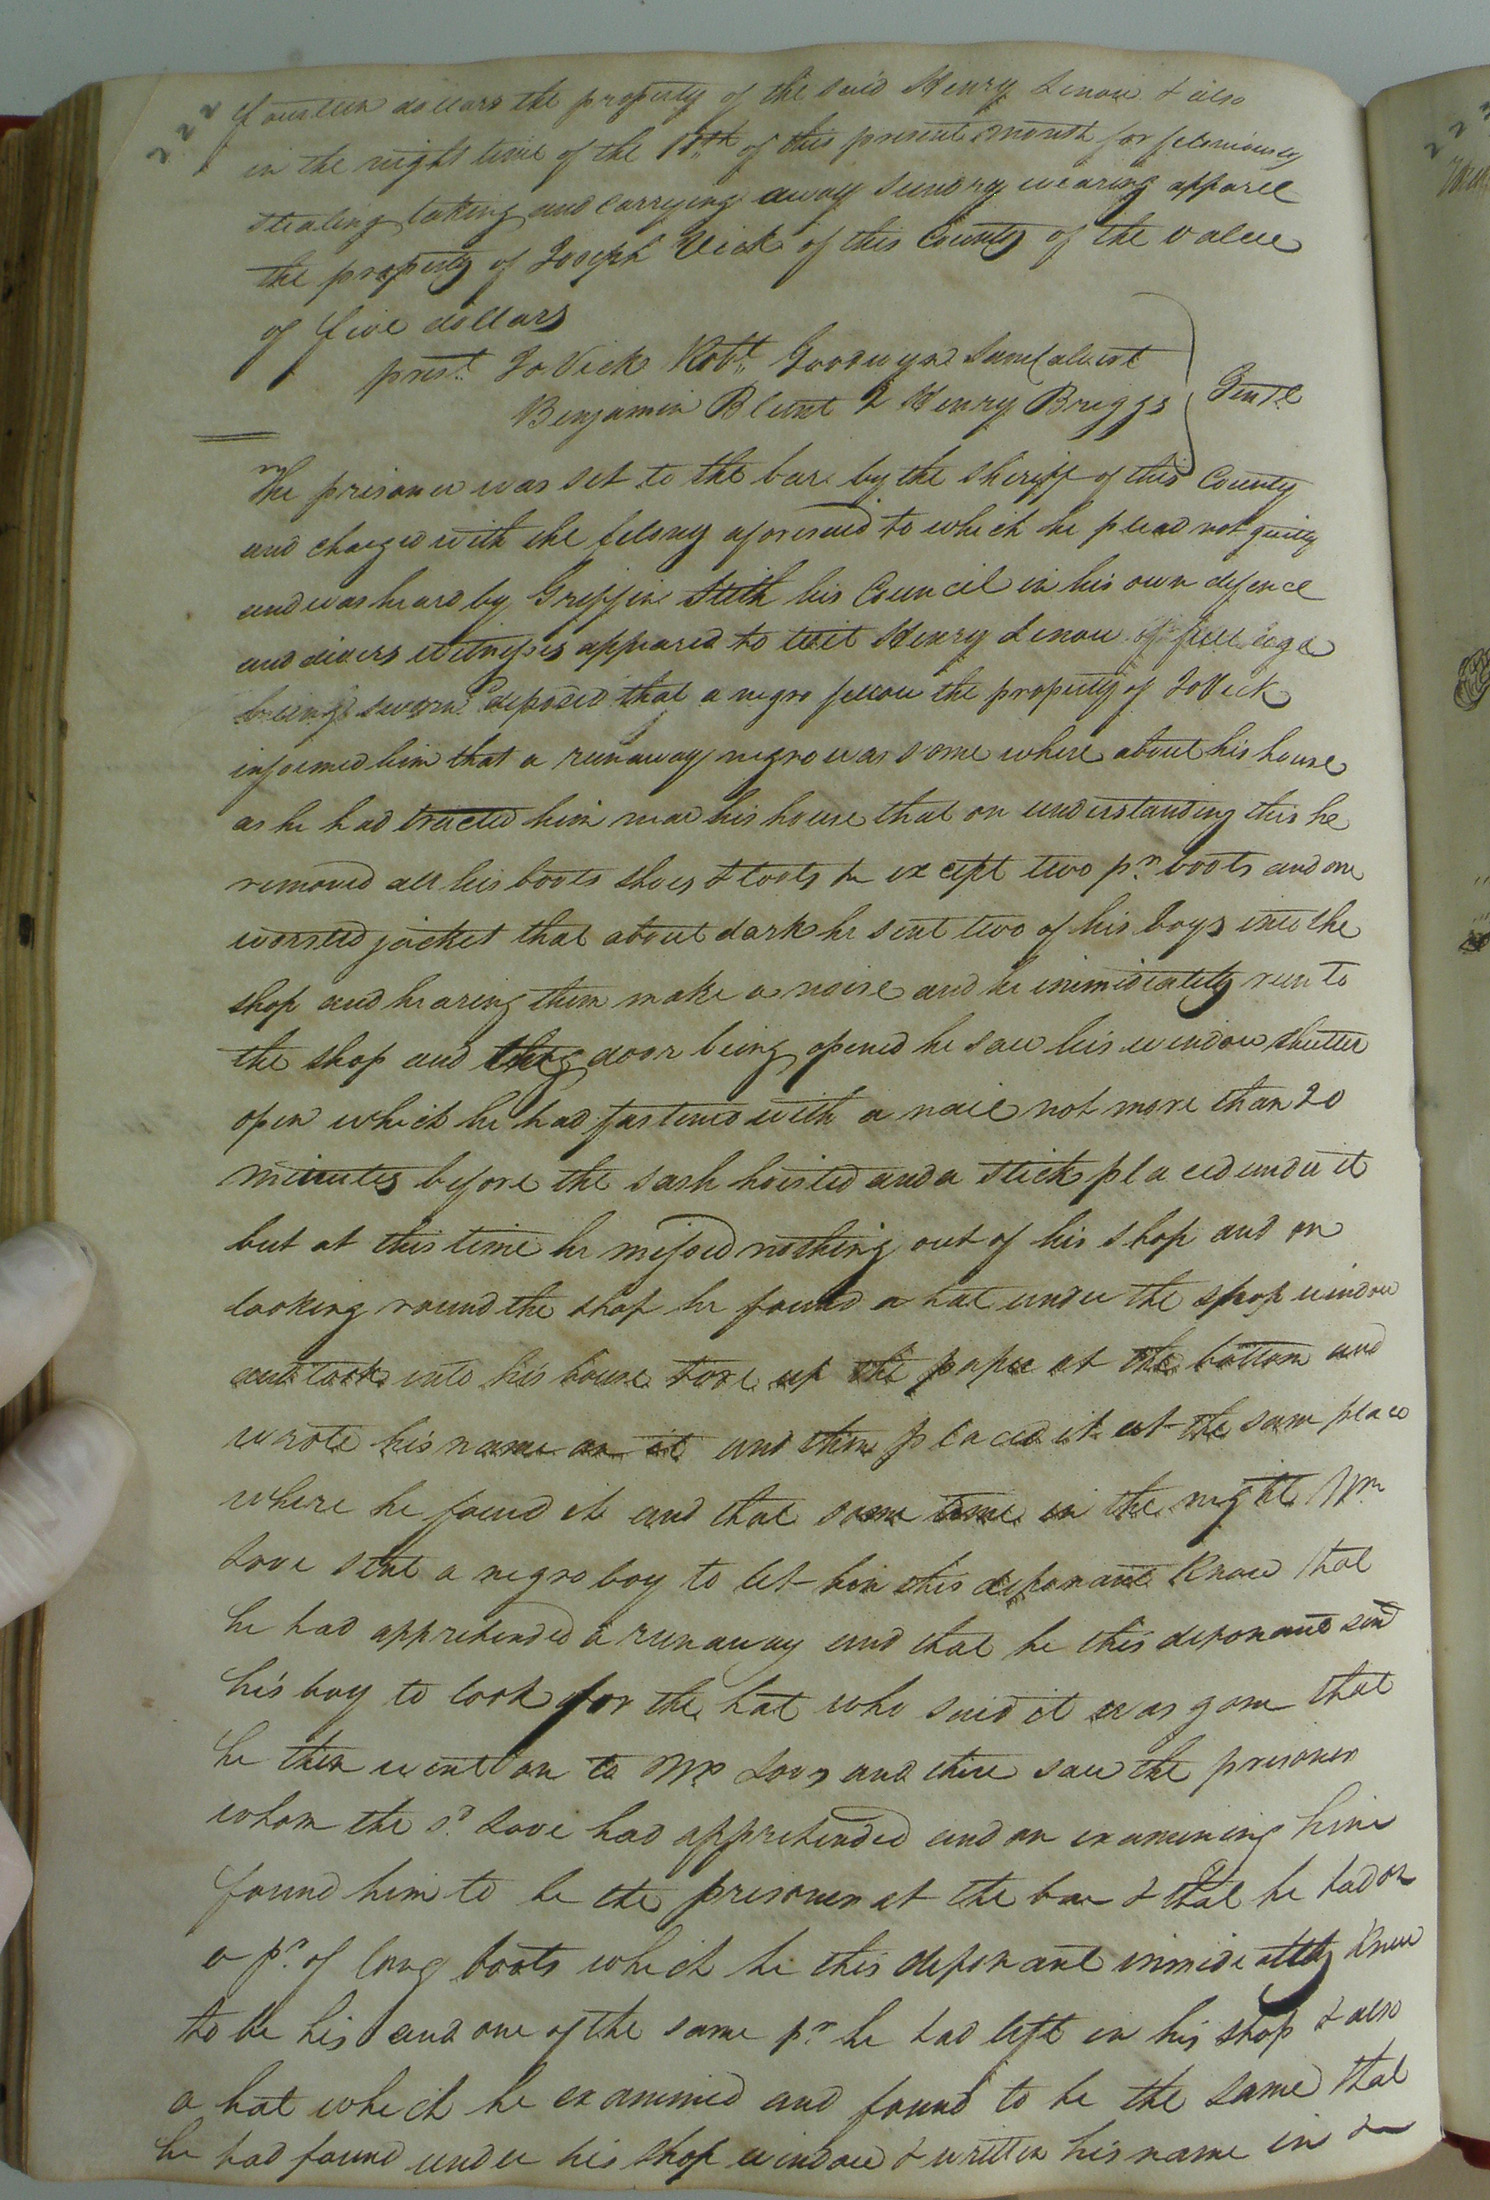 222 fourteen dollars the property of the said Henry Lenow & also
in the night time of the 18th of this present month for feloniously
stealing taking and carrying away sundry wearing apparel
the property of Joseph Vick of this County of the value
of five dollars
prest. Jo Vick Robt. Goodwyn Saml Calvert
Benjamin Blunt & Henry Briggs Gentl
The prisoner was set to the bar by the Sheriff of this County
and charged with the felony aforesaid to which he plead not guilty
and was heard by Griffin Stith his Council in his own defence
and divers witnesses appeared to wit Henry Lenow of full age
being sworn deposed that a negro fellow the property of Jo Vick
informed him that a runaway negro was some where about his house
as he had tracted him near his house that on understanding this he
removed all his boots shoes & tools &c except two pr. boots and one
worsted jacket that about dark he sent two of his boys into the
shop and hearing them make a noise and he immidiately run to
the shop and the door being opened he saw his window shutter
open which he had fastened with a nail not more than 20
minutes before the sash hoisted and a stick placed under it
but at this time he missed nothing out of his shop and on
looking round the shop he found a hat under the shop window
and took into his house tore up the paper at the bottom and
wrote his name on it and then placed it at the same place
where he found it and that some time in the night Wm.
Love sent a negro boy to let him this deponant know that
he had apprehended a runaway and that he this deponant send
his boy to look for the hat who said it was gone that
he then went on to Mr Loves and there saw the prisoner
whom the sd. Love had apprehended and on examining him
found him to be the prisoner at the bar & that he had on
a pr. of long boots which he this deponant immidiattly knew
to be his and one of the same pr. he had left in his shop & also
a hat which he examined and found to be the same that
he had found under his shop window & written his name in &c